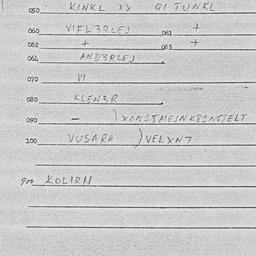 050 KINKL XX QI TUNKL
060 VIFL3RLEJ 061 +
062 + 063 +
064 AND3RLEJ
070 VI
080 KLEN3R
090 –
100 VUSARA )VELXN7
900 KOLIRM